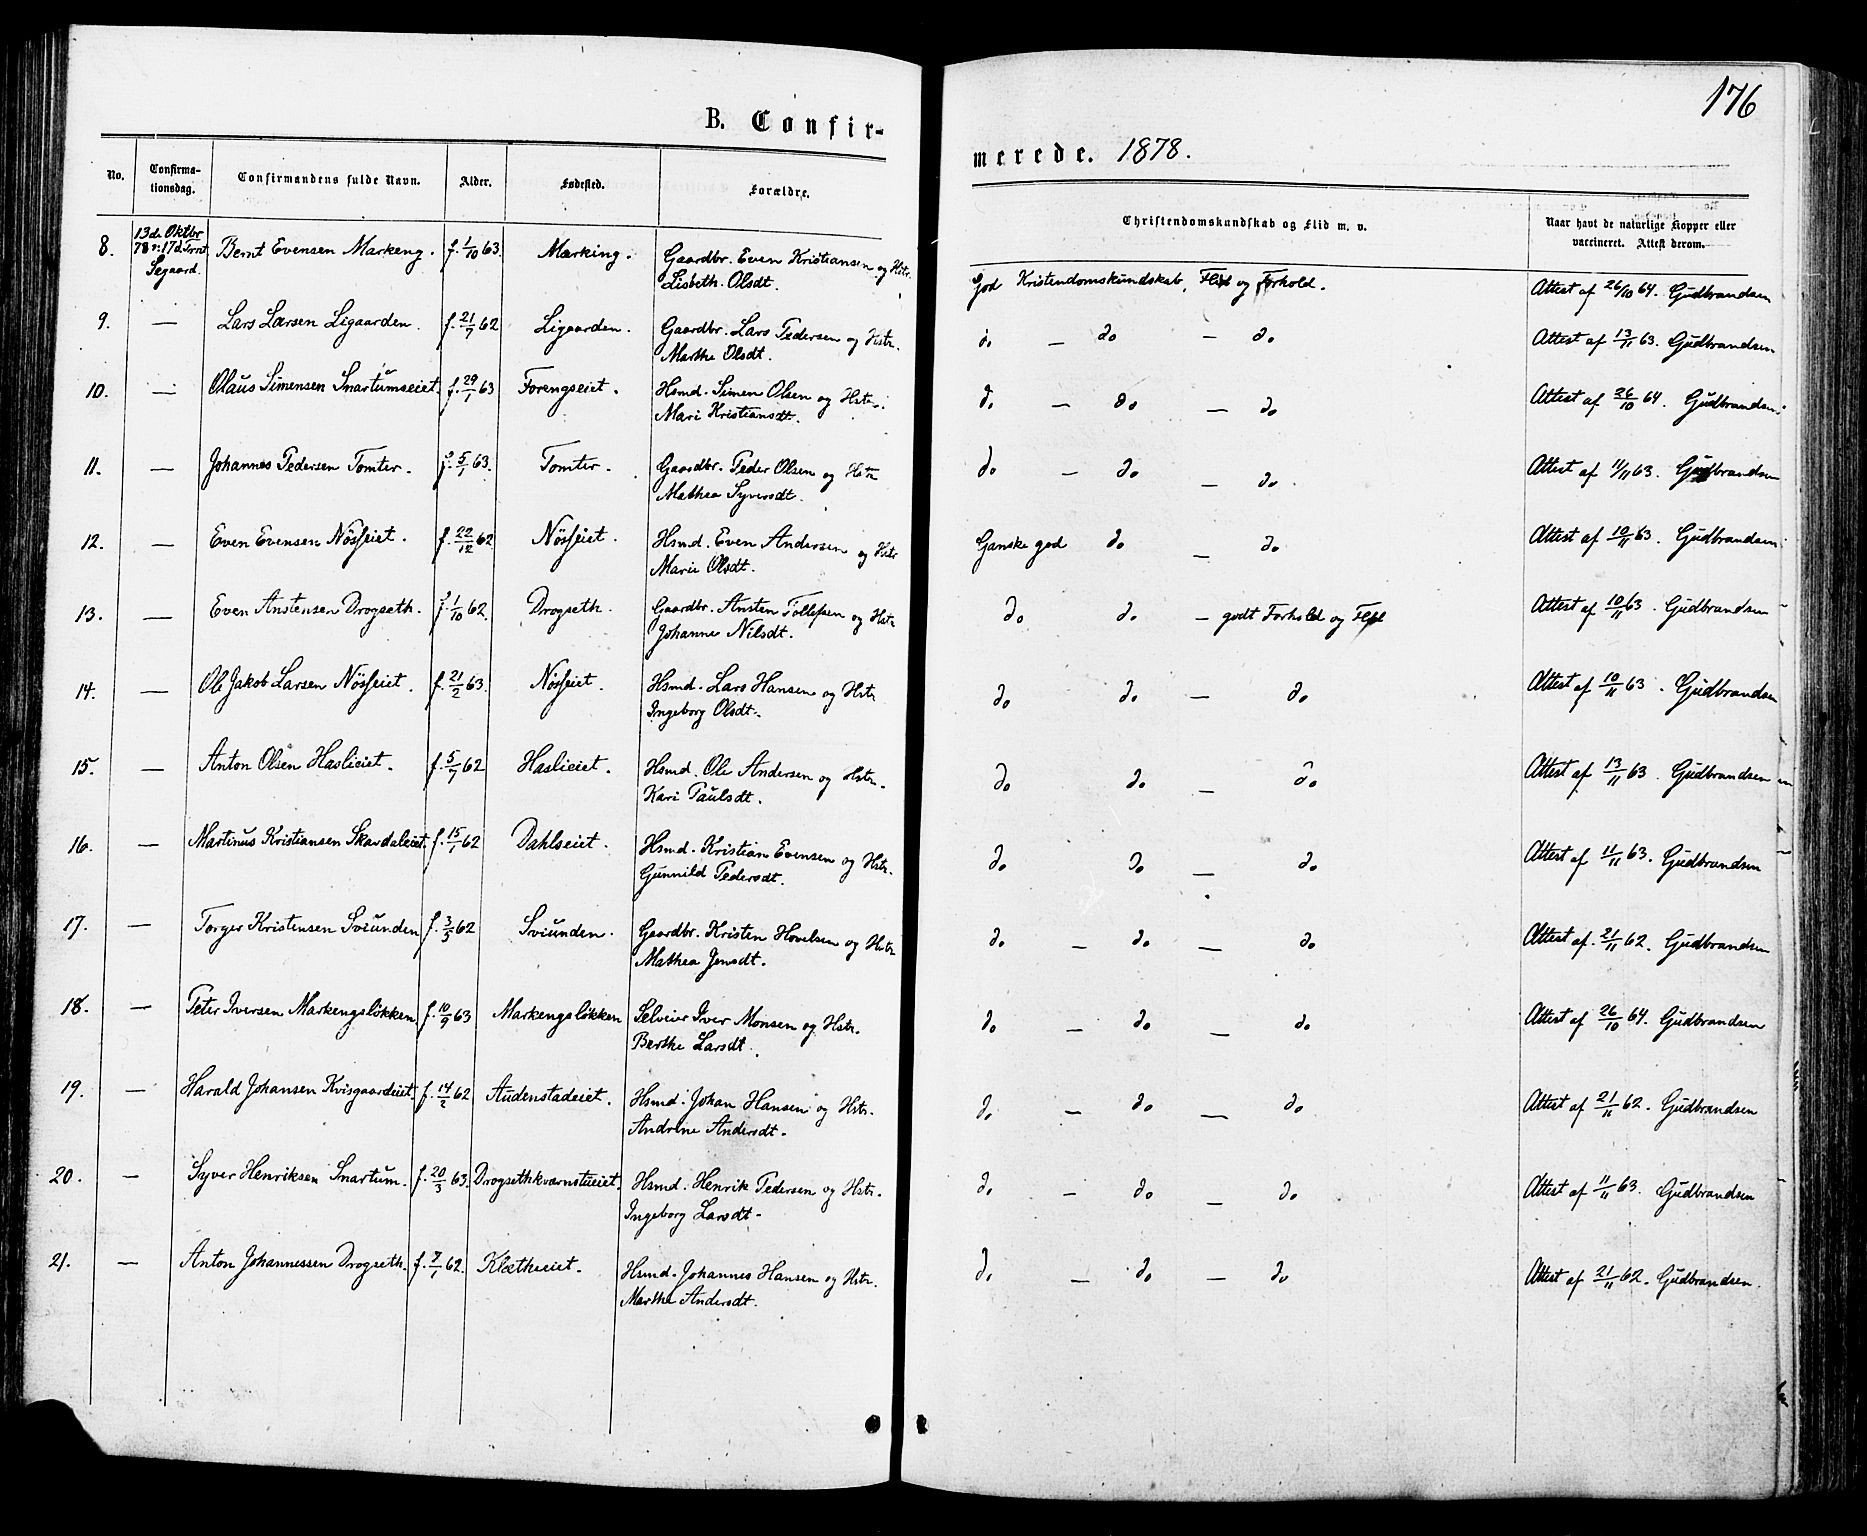 176
B. Confir-
merede. 1878.
No. Confirma-tionsdag. Confirmandens fulde Navn. Alder. Fødested. Forældre. Christendomskundskab og Flid m. v. Naar havt de naturlige Kopper eller vaccineret. Attest derom.
8. 13d. Oktbr 78 Bernt Evensen Markeng. f. 1/10 63. Marking. Gaardbr. Even Kristiansen og Hstr.
Segaard. Lisbeth Olsdt. God Kristendomskundskab, Flid og Forhold. Attest af 26/10 64. Gudbrandsen
9. — Lars Larsen Ligaarden. f. 21/7 62 Ligaarden. Gaardbr. Lars Pedersen og Hstr.
Marthe Olsdt. do — do — do Attest af 13/11 63. Gudbrandsen
10. — Olaus Simensen Snartumseiet. f. 29/1 63 Forengseiet. Hsmd. Simen Olsen og Hstr.
Mari Kristiansdt. do — do — do Attest af 26/10 64. Gudbrandsen
11. — Johannes Pedersen Tomter. f. 5/1 63. Tomter. Gaardbr. Peder Olsen og Hstr
Mathea Syversdt. do — do — do Attest af 11/11 63. Gudbrandsen
12. — Even Evensen Nösseiet. f. 22/12 62 Nösseiet. Hsmd. Even Andersen og Hstr
Marie Olsdt. Ganske god do — do Attest af 10/11 63. Gudbrandsen
13. — Even Anstensen Drogseth. f. 1/10 62. Drogseth. Gaardbr. Ansten Tollefsen og Hstr
Johanne Nilsdt. do do — godt Forhold og Flid Attest af 10/11 63. Gudbrandsen
14. — Ole Jakob Larsen Nösseiet. f. 21/2 63. Nösseiet. Hsmd. Lars Hansen og Hstr
Ingeborg Olsdt. do do — do Attest af 10/11 63. Gudbrandsen
15. — Anton Olsen Haslieiet. f. 5/7 62 Haslieiet. Hsmd. Ole Andersen og Hstr.
Kari Paulsdt. do do — do Attest af 13/11 63. Gudbrandsen
16. — Martinus Kristiansen Skardaleiet. f. 15/1 62 Dahlseiet. Hsmd. Kristian Evensen og Hstr.
Gunnild Pedersdt. do do — do Attest af 11/11 63. Gudbrandsen
17. — Torger Kristensen Sviunden f. 3/5 62 Sviunden. Gaardbr. Kristen Hovelsen og Hstr
Mathea Jensdt. do — do — do Attest af 21/11 62. Gudbrandsen
18. — Peter Iversen Markengsløkken f. 10/9 63 Markengsløkken Selveier Iver Monsen og Hstr.
Berthe Larsdt. do — do — do Attest af 26/10 64. Gudbrandsen
19. — Harald Johansen Kvisgaardeiet f. 14/2 62 Audenstadeiet. Hsmd. Johan Hansen og Hstr.
Andrine Andersdt. do — do — do Attest af 21/11 62. Gudbrandsen
20. — Syver Henriksen Snartum. f. 20/3 63. Drogsethkvernstueiet. Hsmd. Henrik Pedersen og Hstr.
Ingeborg Larsdt. do — do — do Attest af 11/11 63. Gudbrandsen
21. — Anton Johannessen Drogseth. f. 7/1 62. Kletheiet. Hsmd. Johannes Hansen og Hstr.
Marthe Andersdt. do — do — do Attest af 21/11 62. Gudbrandsen.